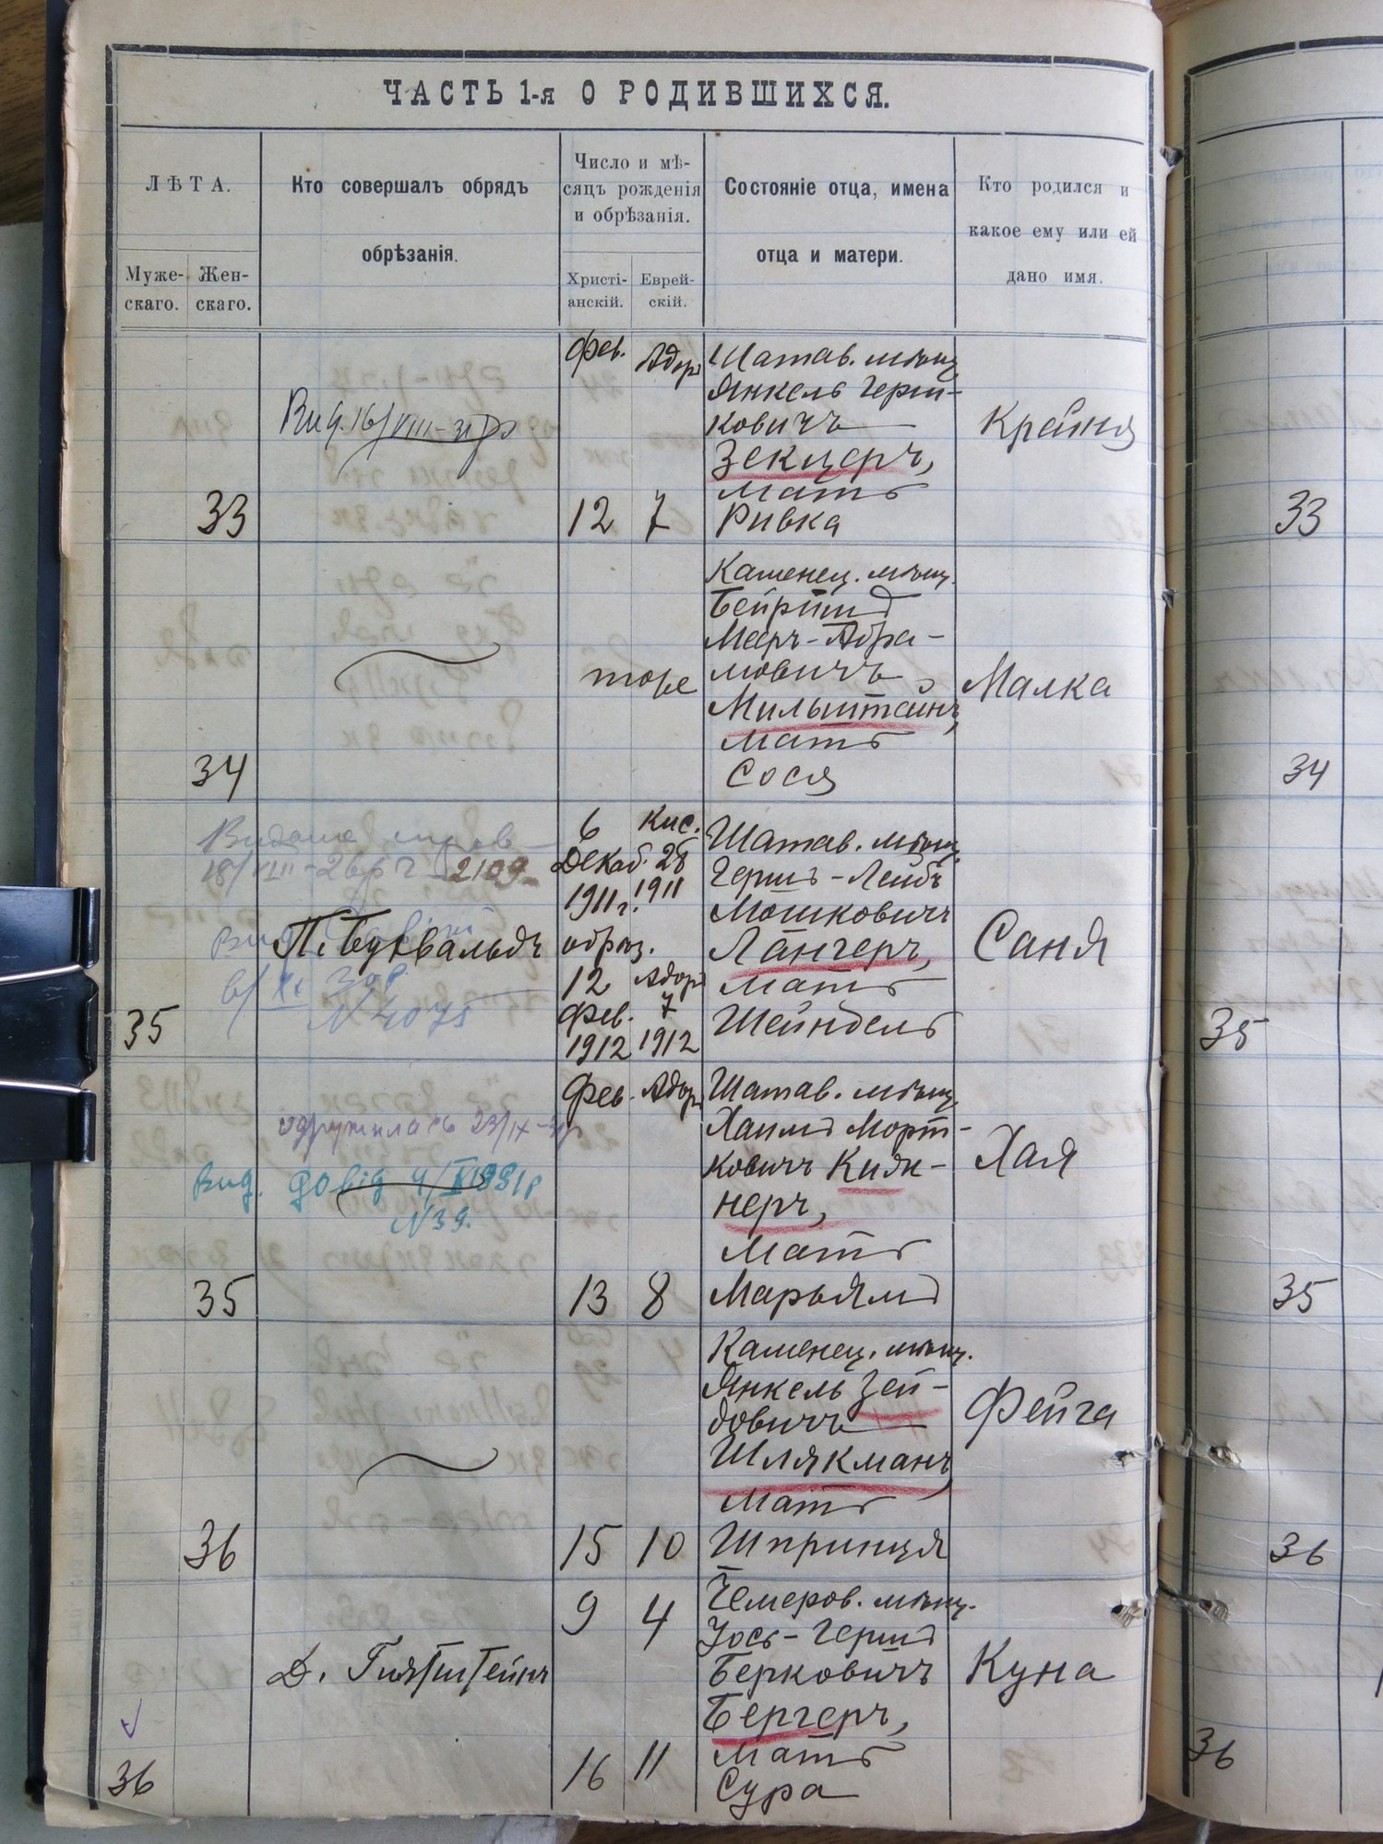 ЧАСТЬ 1-я О РОДИВШИХСЯ.
ЛѢТА.
Муже-
скаго.
Жен-
скаго.
Кто совершалъ обрядъ
обрѣзанія.
Число и мѣ-
сяцъ рожденія
и обрѣзанія.
Христі-
анскій.
Еврей-
скій.
Состояніе отца, имена
отца и матери.
Кто родился и
какое ему или ей
дано имя.
33
Фев.
12
Адоръ
7
Шатав. мѣщ.
Янкель Герш-
ковичъ
Зекцеръ,
мать
Ривка
Крейня
33
34
тоже
Каменец. мѣщ.
Меръ-Абра-
мовичъ
Мильштейнъ,
мать
Сося
Малка
34
2109
35
П. Буквальдъ
N 4075
6
Декаб.
1911 г.
обрѣз.
12
Фев.
1912
Кис.
28
1911
Адоръ
7
1912
Шатав. мѣщ.
Гершъ-Лейбъ
Мошковичъ
Лангеръ,
мать
Шейндель
Саня
35
одружилась 23/IX-
Вид. довід 4/XI 1931р
N 39.
35
Фев.
13
Адоръ
8
Шатав. мѣщ.
Хаимъ Морт-
ковичъ Киж-
неръ,
мать
Марьямъ
Хая
35
36
15
10
Каменец. мѣщ.
Янкель Зей-
довичъ
Шлякманъ,
мать
Шпринця
Фейга
36
36
Д. Глятштейнъ
9
16
4
11
Чемеров. мѣщ.
Іось-Гершъ
Берковичъ
Бергеръ,
мать
Сура
Куна
36